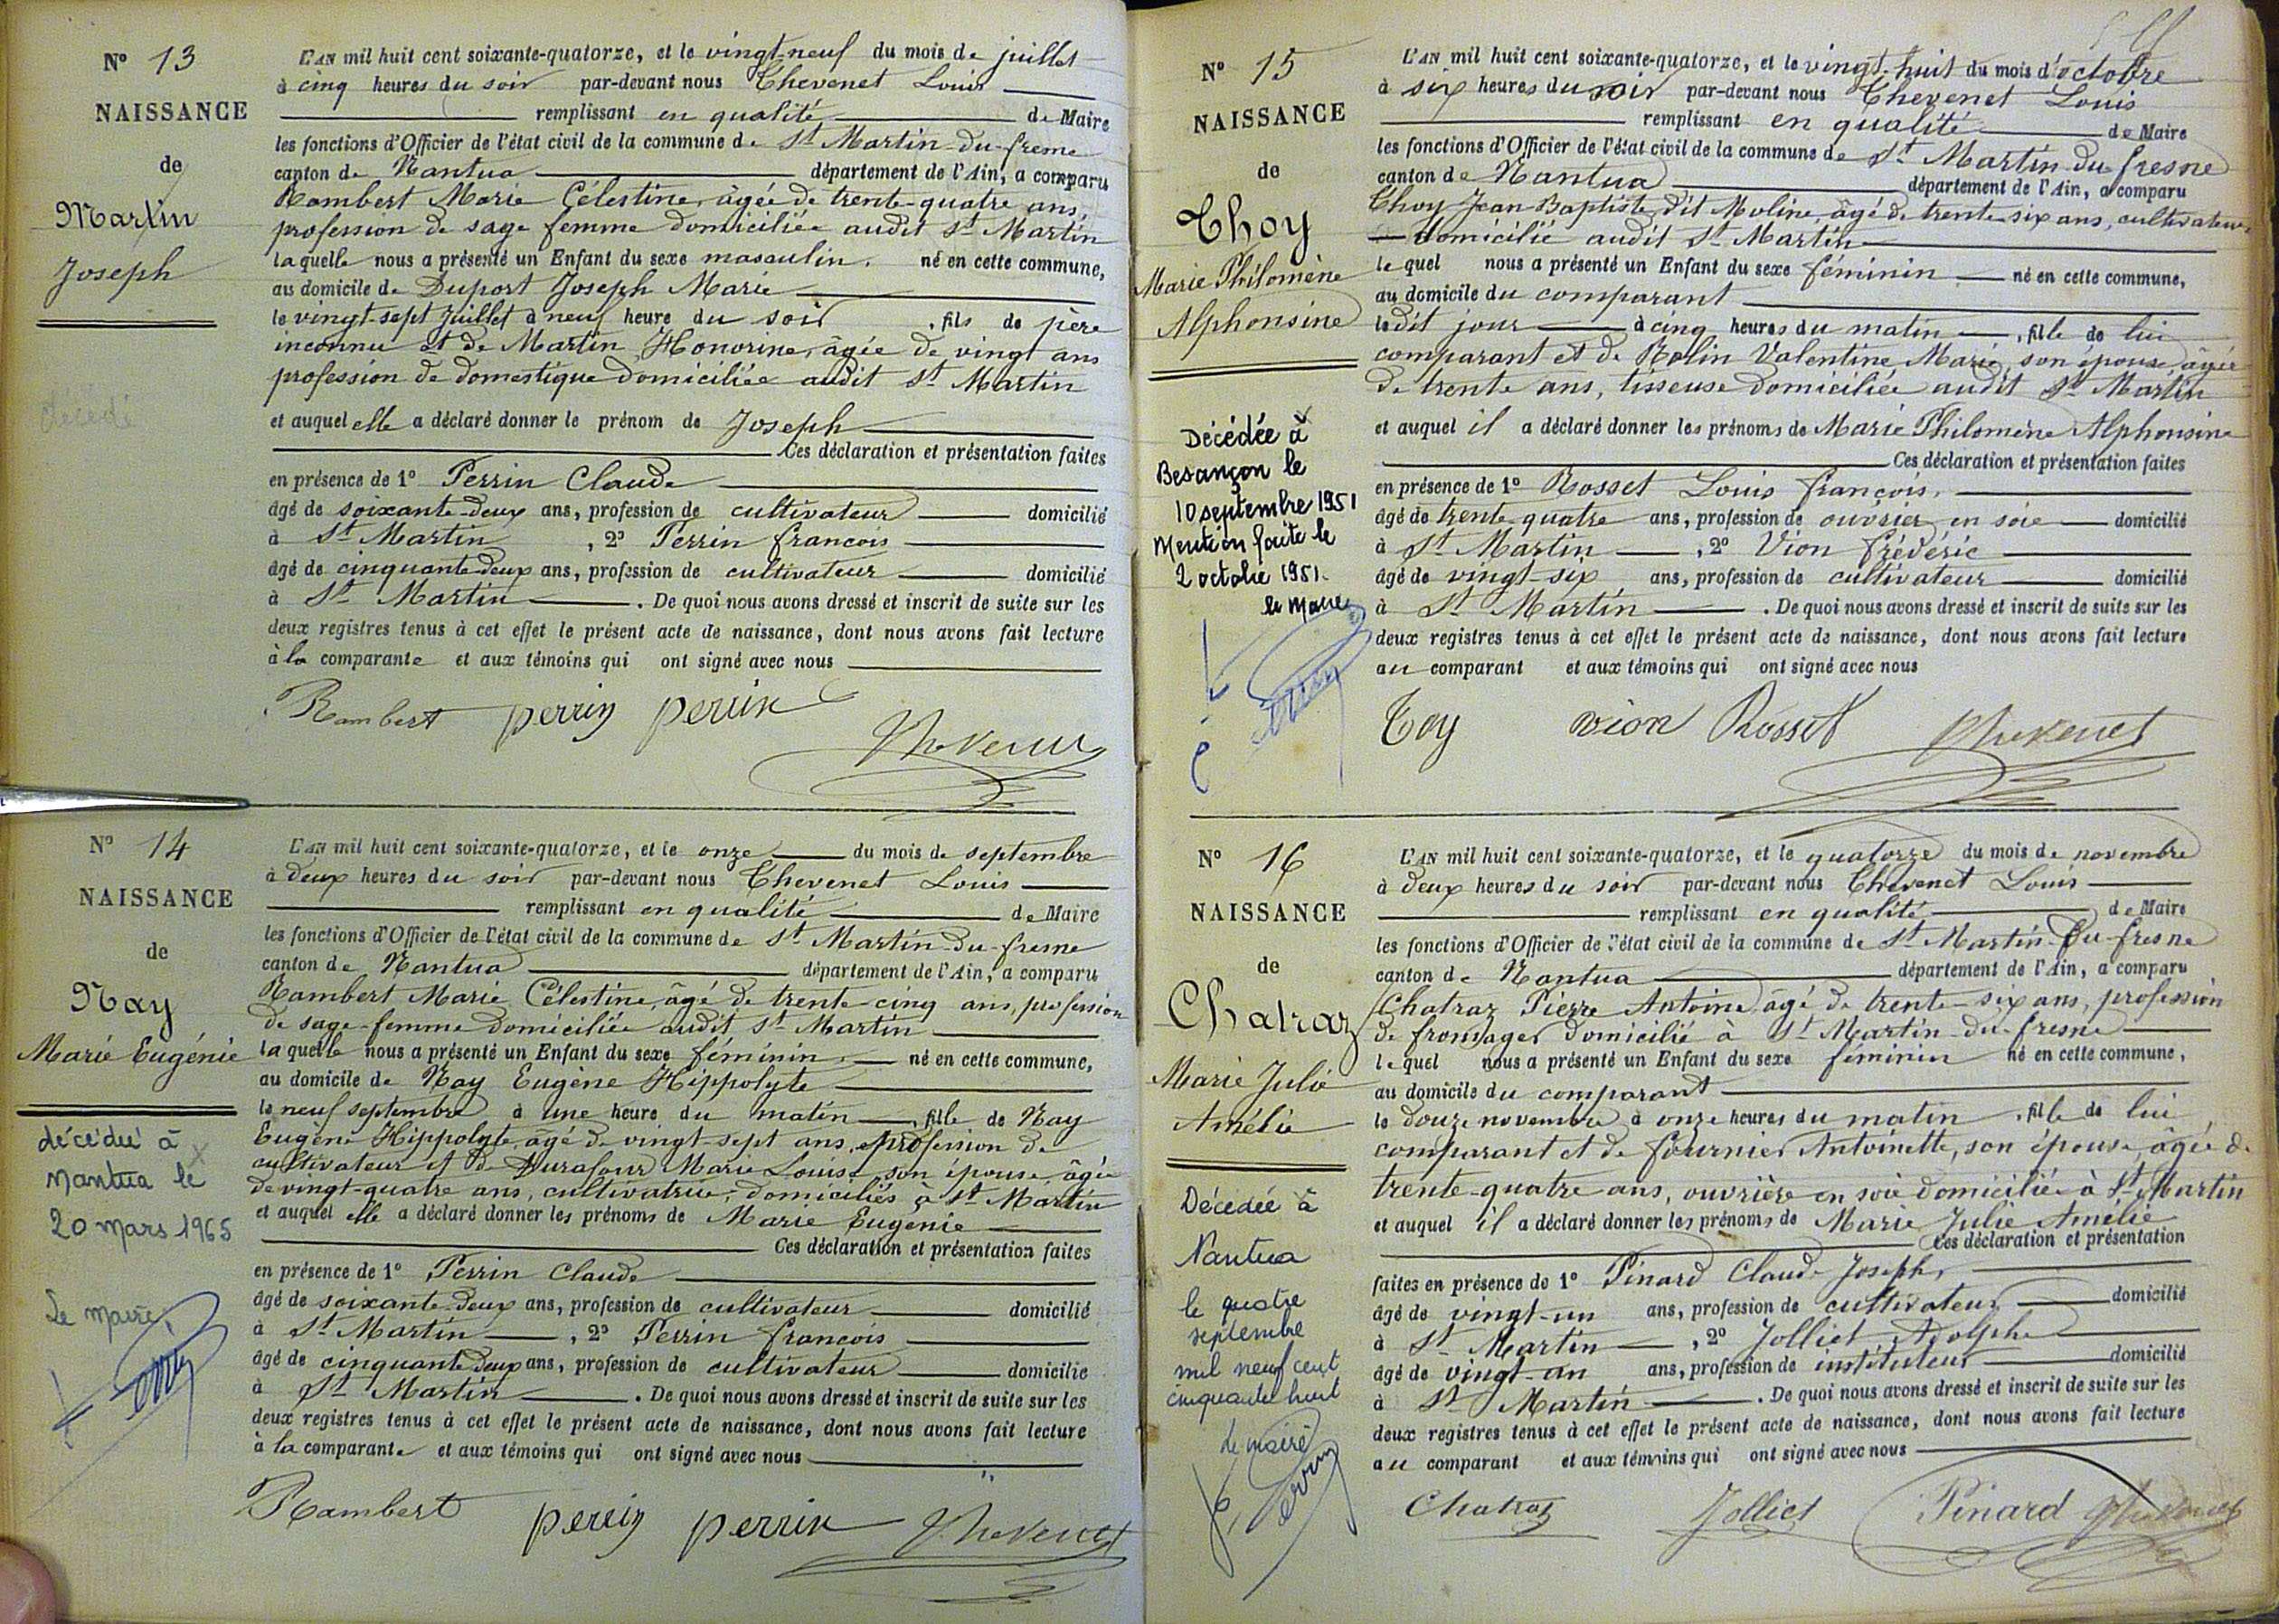 Nº 13
NAISSANCE
de
Martin
Joseph
décédé
L'AN mil huit cent soixante-quatorze, et le vingt-neuf du mois de juillet
à cinq heures du soir par-devant nous Thevenet Louis
remplissant en qualité de Maire
les fonctions d'Officier de l'état civil de la commune de St Martin-du-frene
canton de Nantua département de l'Ain, a comparu
Rambert Marie Célestine, âgée de trente-quatre ans,
profession de sage femme domiciliée audit St Martin
laquelle nous a présenté un Enfant du sexe masculin, né en cette commune,
au domicile de Duport Joseph Marie
le vingt-sept Juillet à neuf heure du soir, fils de père
inconnu et de Martin Honorine, âgée de vingt ans
profession de domestique domiciliée audit St Martin
et auquel elle a déclaré donner le prénom de Joseph
Ces déclaration et présentation faites
en présence de 1º Perrin Claude
âgé de soixante-deux ans, profession de cultivateur domicilié
à St Martin, 2º Perrin françois
âgé de cinquante deux ans, profession de cultivateur domicilié
à St Martin. De quoi nous avons dressé et inscrit de suite sur les
deux registres tenus à cet effet le présent acte de naissance, dont nous avons fait lecture
à la comparante et aux témoins qui ont signé avec nous
Rambert perrin perrin
Thevenet
Nº 14
NAISSANCE
de
Nay
Marie Eugénie
décédée à
Nantua le
20 mars 1965
Le maire,
L'AN mil huit cent soixante-quatorze, et le onze du mois de septembre
à deux heures du soir par-devant nous Thevenet Louis
remplissant en qualité de Maire
les fonctions d'Officier de l'état civil de la commune de St Martin-du-fresne
canton de Nantua département de l'Ain, a comparu
Rambert Marie Célestine, âgé de trente-cinq ans, profession
de sage-femme domiciliée audit St Martin
laquelle nous a présenté un Enfant du sexe féminin, né en cette commune,
au domicile de Nay Eugène Hippolyte
le neuf septembre à une heure du matin, fille de Nay
Eugène Hippolyte, âgé de vingt-sept ans, profession de
cultivateur et de Durafour Marie Louise son épouse, âgée
de vingt-quatre ans, cultivatrice, domiciliés à St Martin
et auquel elle a déclaré donner les prénoms de Marie Eugénie
Ces déclaration et présentation faites
en présence de 1º Perrin Claude
âgé de soixante-deux ans, profession de cultivateur domicilié
à St Martin, 2º Perrin françois
âgé de cinquante deux ans, profession de cultivateur domicilié
à St Martin. De quoi nous avons dressé et inscrit de suite sur les
deux registres tenus à cet effet le présent acte de naissance, dont nous avons fait lecture
à la comparante et aux témoins qui ont signé avec nous
Rambert perrin perrin Thevenet
Nº 15
NAISSANCE
de
Thoy
Marie Philomène
Alphonsine
Décédée à
Besançon le
10 septembre 1951
Mention faite le
2 octobre 1951.
le Maire
L'AN mil huit cent soixante-quatorze, et le vingt-huit du mois d'octobre
à six heures du soir par-devant nous Thevenet Louis
remplissant en qualité de Maire
les fonctions d'Officier de l'état civil de la commune de St Martin-du fresne
canton de Nantua département de l'Ain, a comparu
Thoy Jean-Baptiste dit Moline, âgé de trente-six ans, cultivateur,
domicilié audit St Martin
lequel nous a présenté un Enfant du sexe féminin né en cette commune,
au domicile du comparant
le dit jour à cinq heures du matin, fille de lui
comparant et de Rolin Valentine Marie, son épouse, âgée
de trente ans, tisseuse domiciliée audit St Martin
et auquel il a déclaré donner les prénoms de Marie Philomène Alphonsine
Ces déclaration et présentation faites
en présence de 1º Rosset Louis françois,
âgé de trente-quatre ans, profession de ouvrier en soie domicilié
à St Martin, 2º Vion frédéric
âgé de vingt-six ans, profession de cultivateur domicilié
à St Martin. De quoi nous avons dressé et inscrit de suite sur les
deux registres tenus à cet effet le présent acte de naissance, dont nous avons fait lecture
au comparant et aux témoins qui ont signé avec nous
Toy vion Rosset Thevenet
Nº 16
NAISSANCE
de
Chatraz
Marie Julie
Amélie
Décédée à
Nantua
le quatre
septembre
mil neuf cent
cinquante huit
le maire
L'AN mil huit cent soixante-quatorze, et le quatorze du mois de novembre
à deux heures du soir par-devant nous Thevenet Louis
remplissant en qualité de Maire
les fonctions d'Officier de l'état civil de la commune de St Martin-Du-fresne
canton de Nantua département de l'Ain, a comparu
Chatraz Pierre Antoine, âgé de trente-six ans, profession
de fromager domicilié à St Martin-du-fresne
lequel nous a présenté un Enfant du sexe féminin né en cette commune,
au domicile du comparant
le douze novembre à onze heures du matin, fille de lui
comparant et de fournier Antoinette, son épouse, âgée de
trente-quatre ans, ouvrière en soie domiciliée à St Martin
et auquel il a déclaré donner les prénoms de Marie Julie Amélie
Ces déclaration et présentation
faites en présence de 1º Pinard Claude Joseph,
âgé de vingt-un ans, profession de cultivateur domicilié
à St Martin, 2º Jolliet Adolphe
âgé de vingt-un ans, profession de instituteur domicilié
à St Martin. De quoi nous avons dressé et inscrit de suite sur les
deux registres tenus à cet effet le présent acte de naissance, dont nous avons fait lecture
au comparant et aux témoins qui ont signé avec nous
Chatraz Jolliet Pinard Thevenet